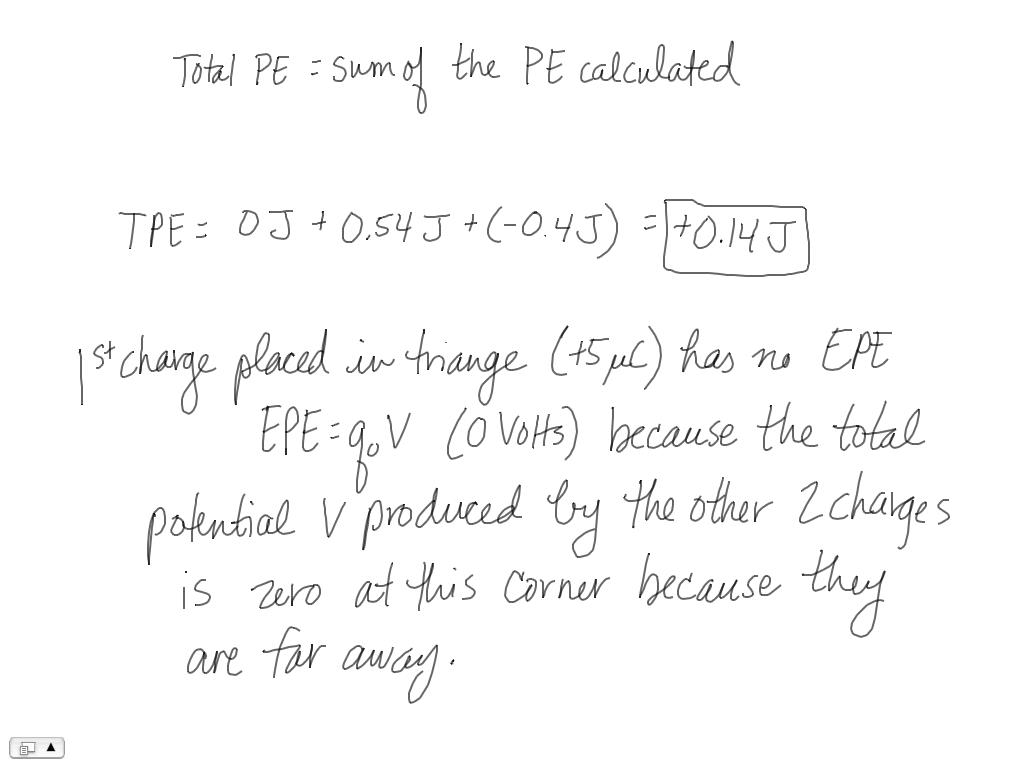 Total PE = sum of the PE calculated
TPE = 0 J + 0.54 J + (-0.4 J) = +0.14 J
1st charge placed in triange (+5 μC) has no EPE
EPE = q₀V (0 Volts) because the total
potential V produced by the other 2 charges
is zero at this corner because they
are far away.